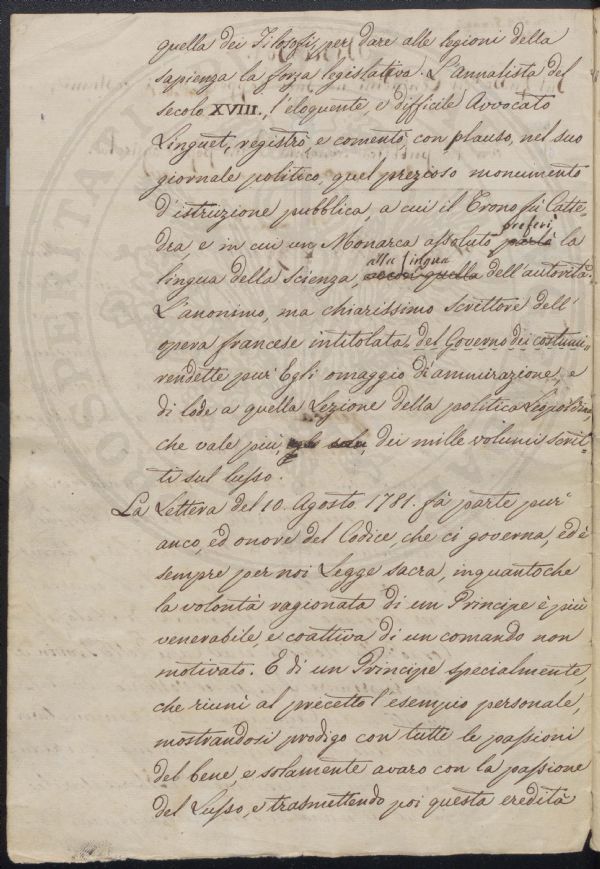 quella dei Filosofi, per dare alle legioni della
sapienza la forza legislativa. L'Annalista del
secolo XVIII., l'eloquente, e difficile Avvocato
Linguet, registrò, e comentò, con plauso, nel suo
giornale politico, quel prezioso monumento
d'istruzione pubblica, a cui il Trono fù Catte-
dra, e in cui un Monarca assoluto preferì la
lingua della scienza, alla lingua dell'autorità.
L'anonimo, ma chiarissimo scrittore dell'
opera francese intitolata del Governo dei costumi,
rendette pur'Egli omaggio d'ammirazione, e
di lode a quella Lezione della politica Leopoldina,
che vale più, dei mille volumi scrit-
ti sul lusso.
La Lettera del 10. Agosto 1781. fà parte pur'
anco, ed onore del Codice, che ci governa, ed è
sempre per noi Legge sacra, inquantoche
la volontà ragionata di un Principe è più
venerabile, e coattiva di un comando non
motivato. E di un Principe specialmente,
che riunì al precetto l'esempio personale,
mostrandosi prodigo con tutte le passioni
del bene, e solamente avaro con la passione
del Lusso, e trasmettendo poi questa eredità